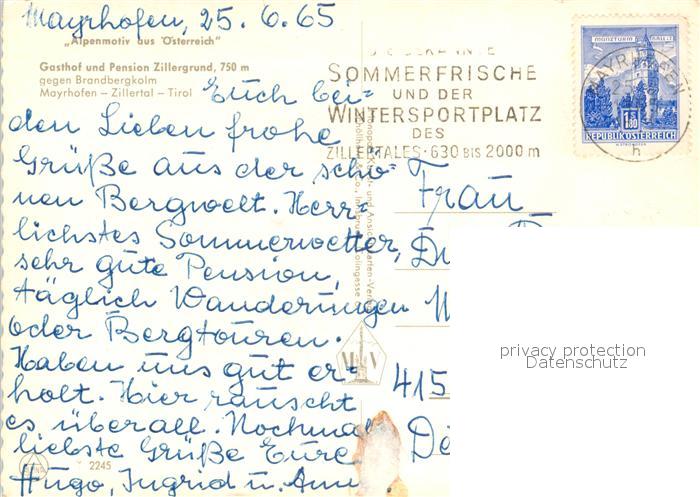 Mayrhofen, 25.6.65
„Alpenmotiv aus Österreich"
Gasthof und Pension Zillergrund, 750 m
gegen Brandbergkolm
Mayrhofen – Zillertal – Tirol
Euch bei-
den Lieben frohe
Grüße aus der schö-
nen Bergwelt. Herr-
lichstes Sommerwetter,
sehr gute Pension,
täglich Wanderungen
oder Bergtouren.
Haben uns gut er-
holt. Hier rauscht
es überall. Nochmals
liebste Grüße Eure
Hugo, Ingrid u.
2245
SOMMERFRISCHE
UND DER
WINTERSPORTPLATZ
DES
ZILLERTALES · 630 BIS 2000 m
MÜNZTURM HALL i. T.
S 1.80
REPUBLIK ÖSTERREICH
MAYRHOFEN
h
Frau
415
privacy protection
Datenschutz